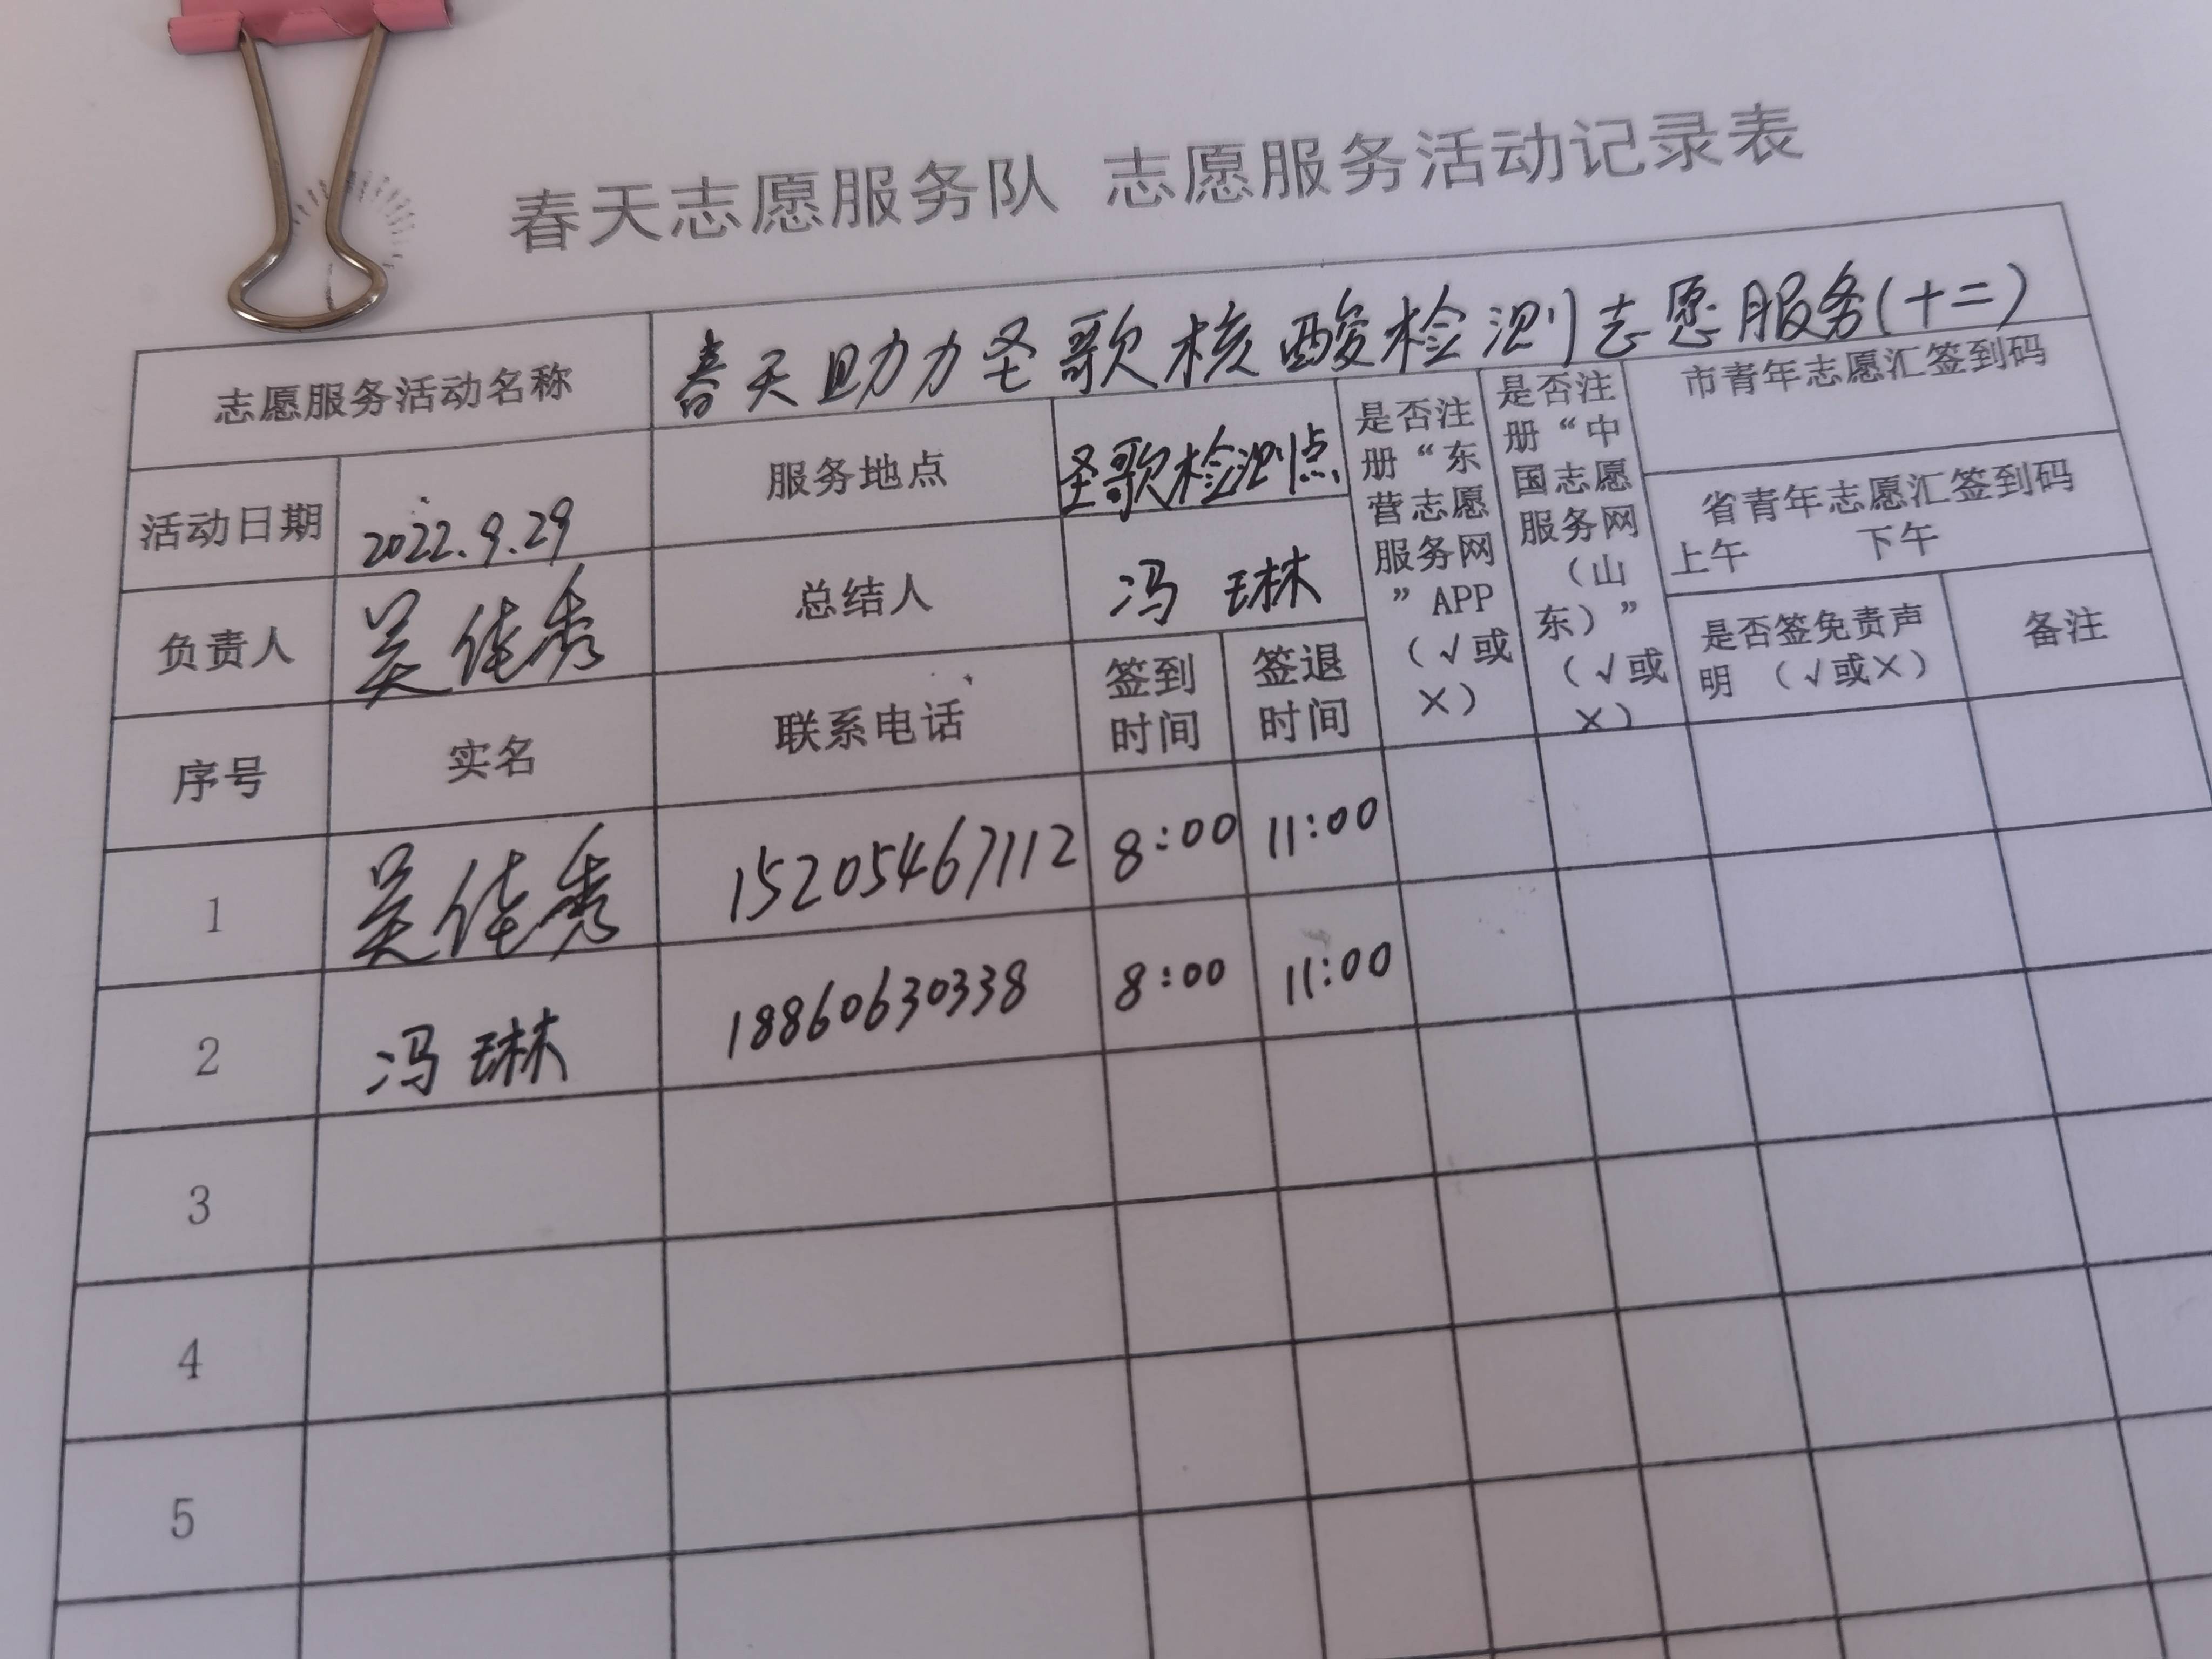 春天志愿服务队 志愿服务活动记录表
志愿服务活动名称 春天助力圣歌核酸检测志愿服务(十二)
活动日期 2022.9.29 服务地点 圣歌检测点
负责人 吴佳秀 总结人 冯琳
是否注
册“东
营志愿
服务网
”APP
(√或
×)
是否注
册“中
国志愿
服务网
(山
东)”
(√或
×)
市青年志愿汇签到码
省青年志愿汇签到码
上午 下午
是否签免责声
明 (√或×)
备注
序号 实名 联系电话
签到
时间
签退
时间
1 吴佳秀 15205467112 8:00 11:00
2 冯琳 18860630338 8:00 11:00
3
4
5